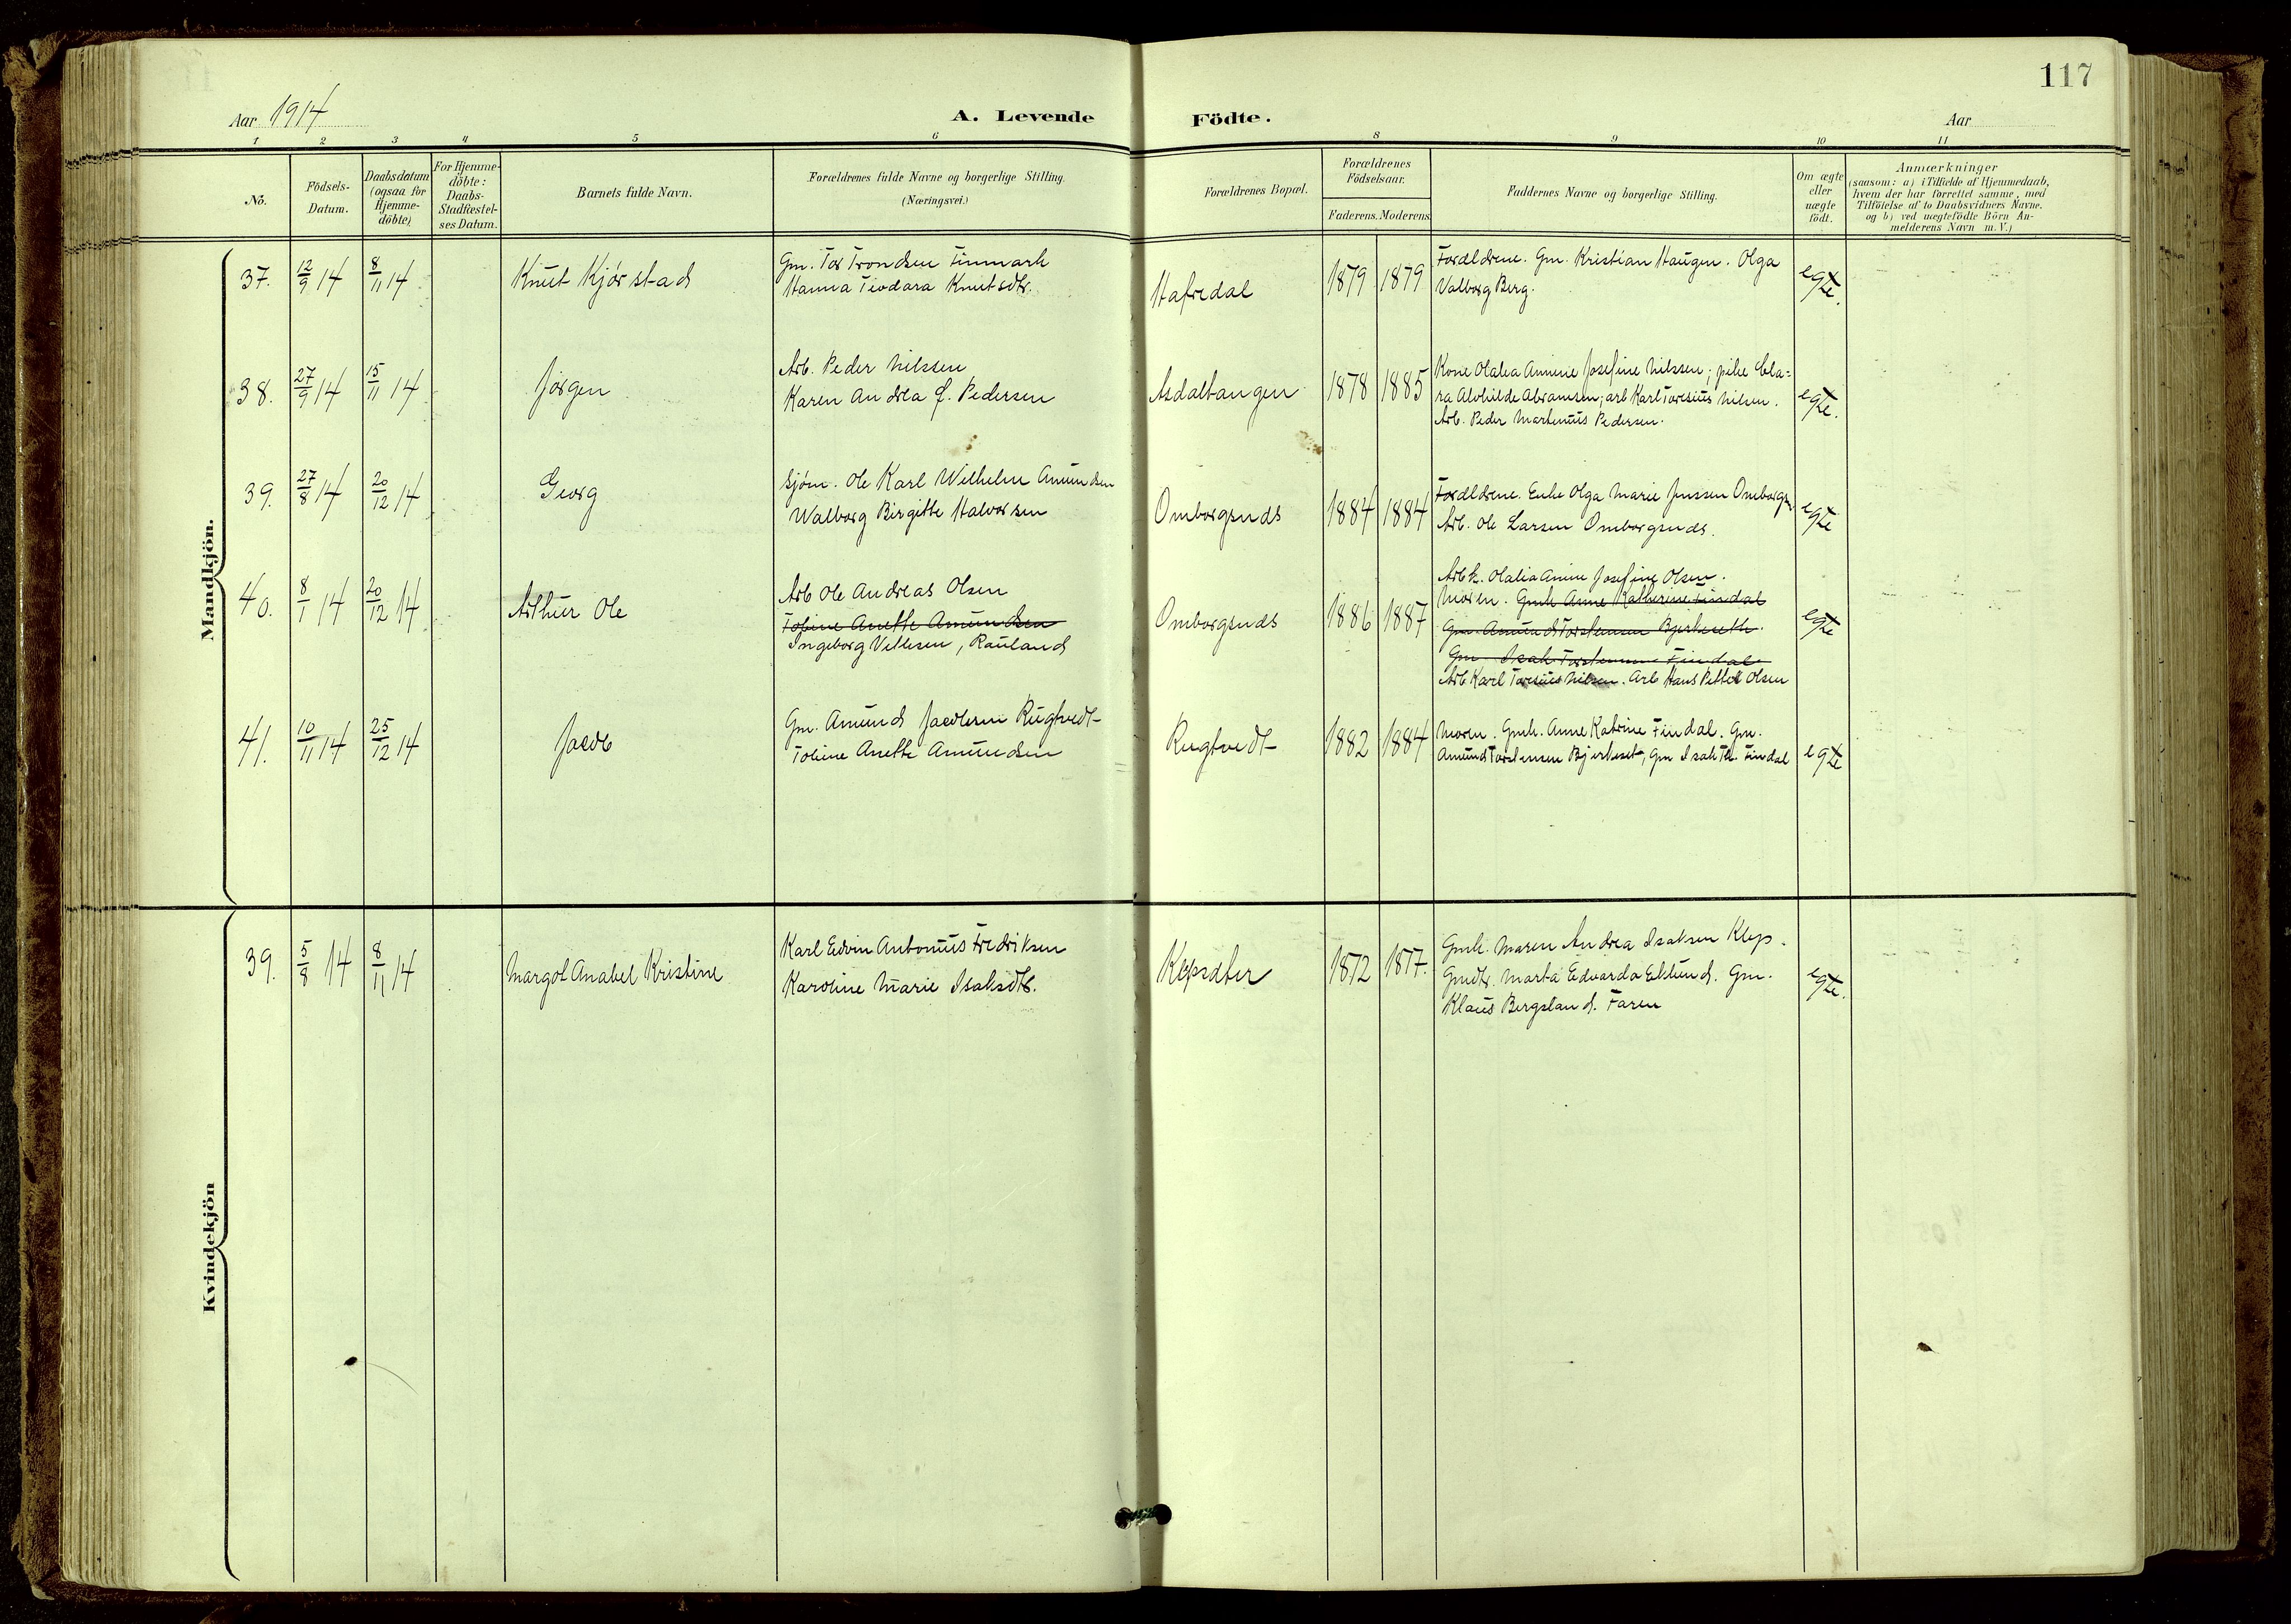 117
Aar 1914
A. Levende Födte.
Aar
1 2 3 4 5 6 8 9 10 11
No.
Födsels-
Datum.
Daabsdatum
(ogsaa for
Hjemme-
döbte).
For Hjemme-
döbte:
Daabs-
Stadfæstel-
ses Datum.
Barnets fulde Navn.
Forældrenes fulde Navne og borgerlige Stilling.
(Næringsvei.)
Forældrenes Bopæl.
Forældrenes
Födselsaar.
Faderens. Moderens.
Faddernes Navne og borgerlige Stilling.
Om ægte
eller
uægte
födt.
Anmærkninger
(saasom: a) i Tilfælde af Hjemmedaab,
hvem der har forrettet samme, med
Tilföielse af to Daabsvidners Navne.
og b) ved uægtefödte Börn An-
melderens Navn m. V.)
Mandkjön.
37. 12/9 14 8/11 14 Knut Kjørstad
Gm. Tor Trondsen Finmark
Hanna Teodara Knutsdtr.
Hafredal 1879 1879
Forældrene. Gm. Kristian Haugen. Olga
Valborg Berg.
egte.
38. 27/9 14 15/11 14 Jørgen
Arb. Peder Nilssen
Karen Andrea f. Pedersen
Asdaltangen 1878 1885
Kone Olalea Annine Josefine Nilssen; pike Cla=
ra Alvhilde Abramsen; arb Karl Toresius Nilsen.
Arb. Peder Martenius Pedersen.
egte.
39. 27/8 14 20/12 14 Georg
Sjøm. Ole Karl Wilhelm Amundsen
Walborg Birgitte Halvorsen
Omborgsnds 1884 1884
Forældrene. Enke Olga Marie Jenssen Omborgsn
Arb. Ole Larsen Omborgsnds.
egte
40. 8/1 14 20/12 14 Arthur Ole
Arb Ole Andreas Olsen
Tobine Anette Amundsen
Ingeborg Vetlesen, Rauland
Omborgsnds 1886 1887
Arb k. Olalia Anine Josefine Olsen.
Moren. Gmk Anne Katherine Findal
Gm. Amund Torstensen Bjerkeseth.
Gm Isak Torstensen Findal
Arb Karl Toresius Nilsen. Arb Hans Petter Olsen
egte
41. 10/11 14 25/12 14 Jacob
Gm. Amund Jacobsen Rugtvedt
Tobine Anette Amundsen
Rugtvedt 1882 1884
Moren. Gmk. Anne Katrine Findal. Gm.
Amund Torstensen Bjerkeset, Gm Isak Th. Findal
egte
Kvindekjön
39. 5/8 14 8/11 14 Margot Anabel Kristine
Karl Edvin Antonius Fredriksen
Karoline Marie Isaksdtr.
Klepsdter 1872 1877.
Gmk. Maren Andrea Isaksen Klep.
Gmdtr. Marta Edvarda Eklund. Gm.
Klaus Bergsland. Faren
egte.